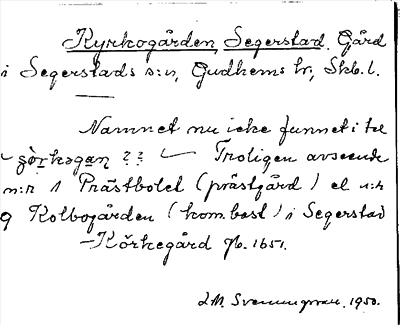 Kyrkogården, Segerstad. Gård
i Segerstads s:n, Gudhems hr, Skb. l.
Namnet nu icke funnet i tal
Troligen avseende
n:r 1 Prästbolet (prästgård) el n:r
9 Kolbogården (kom.bost.) i Segerstad
– Körkegård Jb. 1651.
1950.